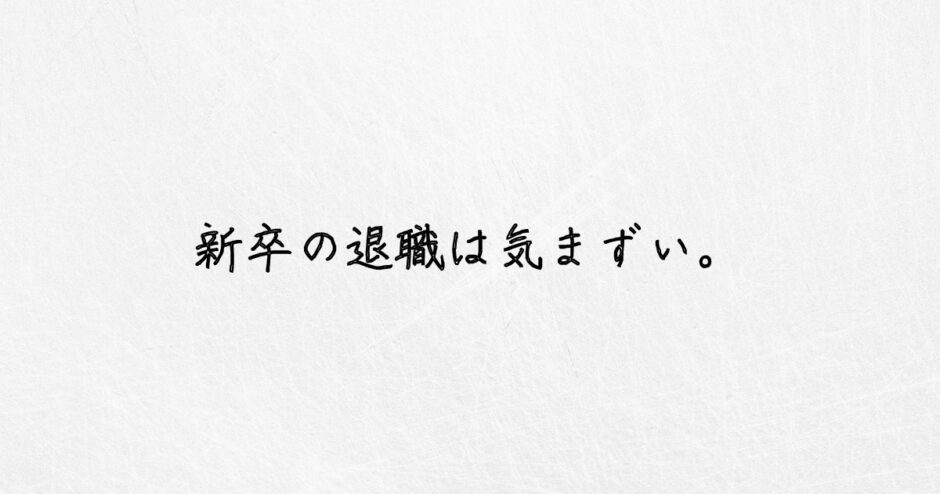 新卒の退職は気まずい。